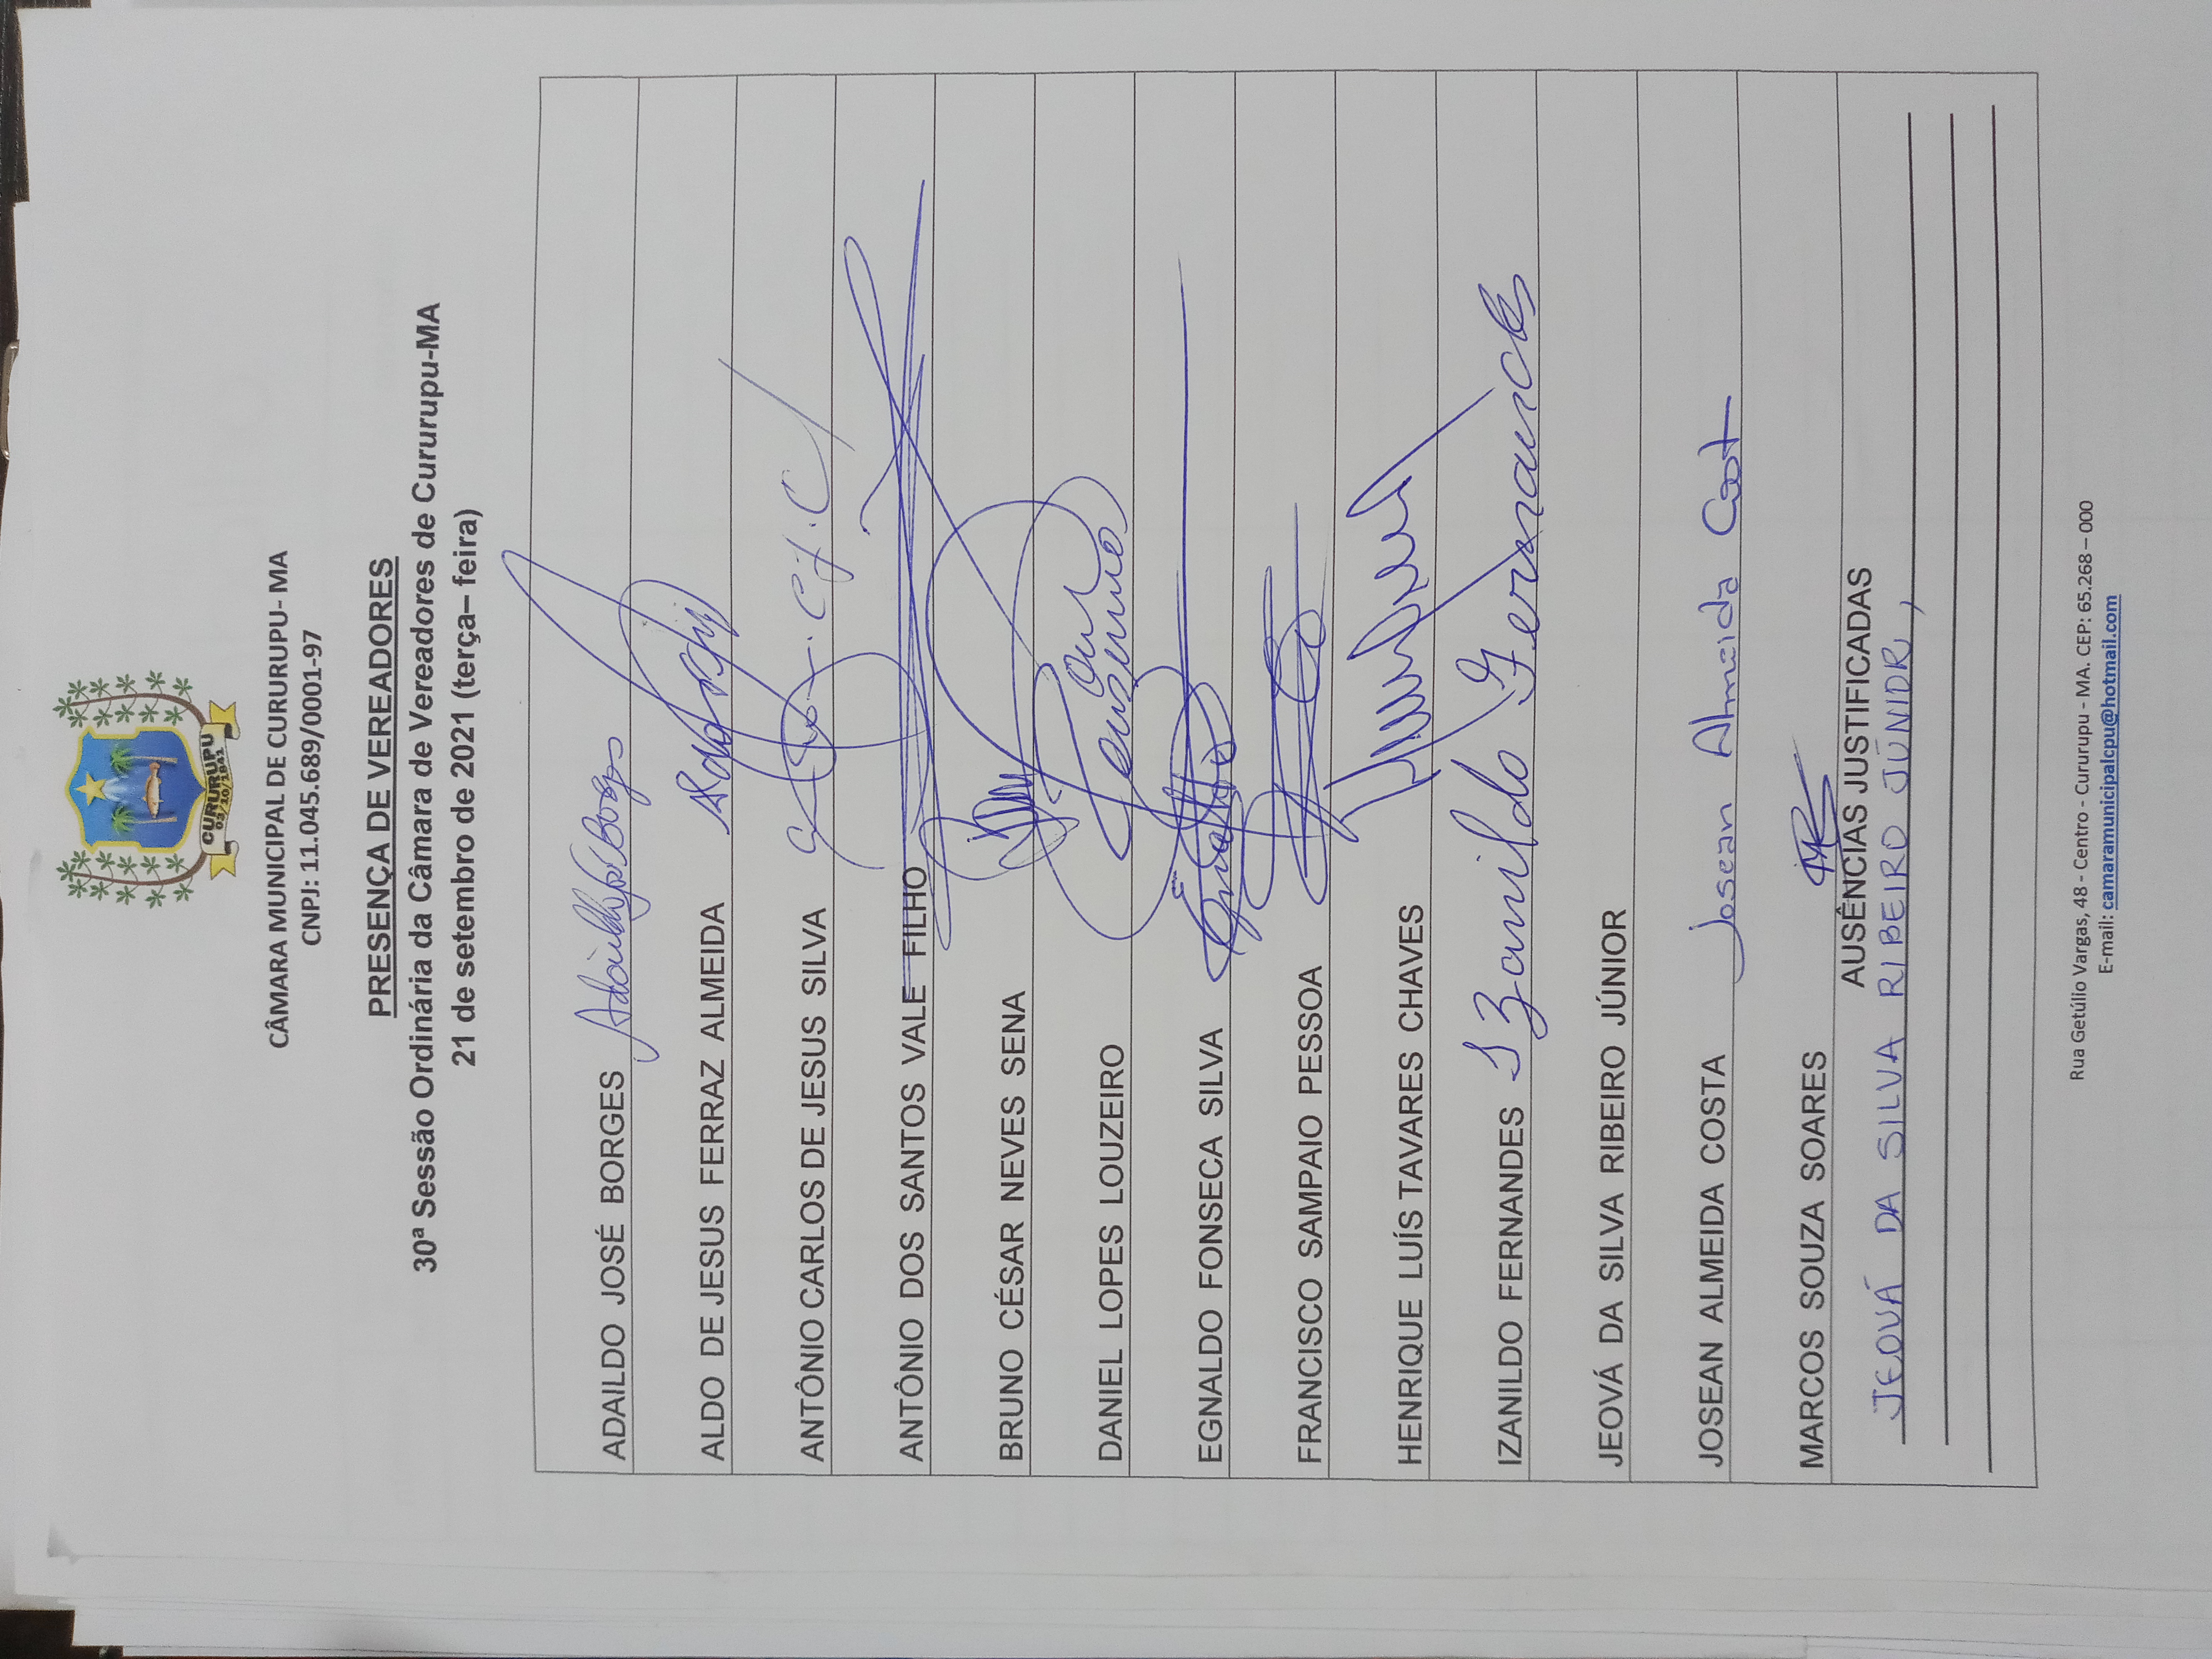 CURURUPU
03/10/1841
CÂMARA MUNICIPAL DE CURURUPU- MA
CNPJ: 11.045.689/0001-97
PRESENÇA DE VEREADORES
30ª Sessão Ordinária da Câmara de Vereadores de Cururupu-MA
21 de setembro de 2021 (terça– feira)
ADAILDO JOSÉ BORGES
ALDO DE JESUS FERRAZ ALMEIDA
ANTÔNIO CARLOS DE JESUS SILVA
ANTÔNIO DOS SANTOS VALE FILHO
BRUNO CÉSAR NEVES SENA
DANIEL LOPES LOUZEIRO
EGNALDO FONSECA SILVA
FRANCISCO SAMPAIO PESSOA
HENRIQUE LUÍS TAVARES CHAVES
IZANILDO FERNANDES Izanildo Fernandes
JEOVÁ DA SILVA RIBEIRO JÚNIOR
JOSEAN ALMEIDA COSTA Josean Almeida Cost
MARCOS SOUZA SOARES
AUSÊNCIAS JUSTIFICADAS
JEOVÁ DA SILVA RIBEIRO JÚNIOR,
Rua Getúlio Vargas, 48 - Centro - Cururupu - MA. CEP: 65.268 – 000
E-mail: camaramunicipalcpu@hotmail.com